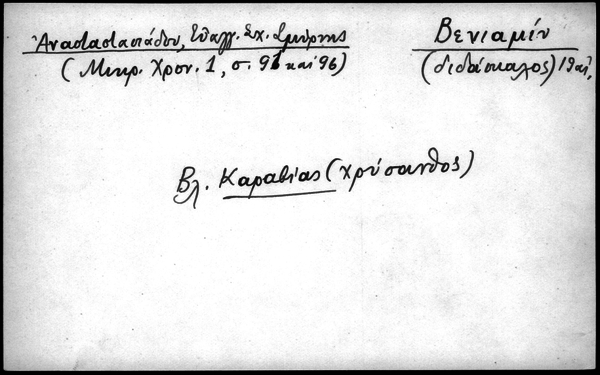 Ἀναστασιάδου, Εὐαγγ. Σχ. Σμύρνης
(Μικρ. Χρον. 1, σ. 91 καὶ 96)
Βενιαμίν
(διδάσκαλος) 19 αἰ.
Βλ. Καραβίας (Χρύσανθος)